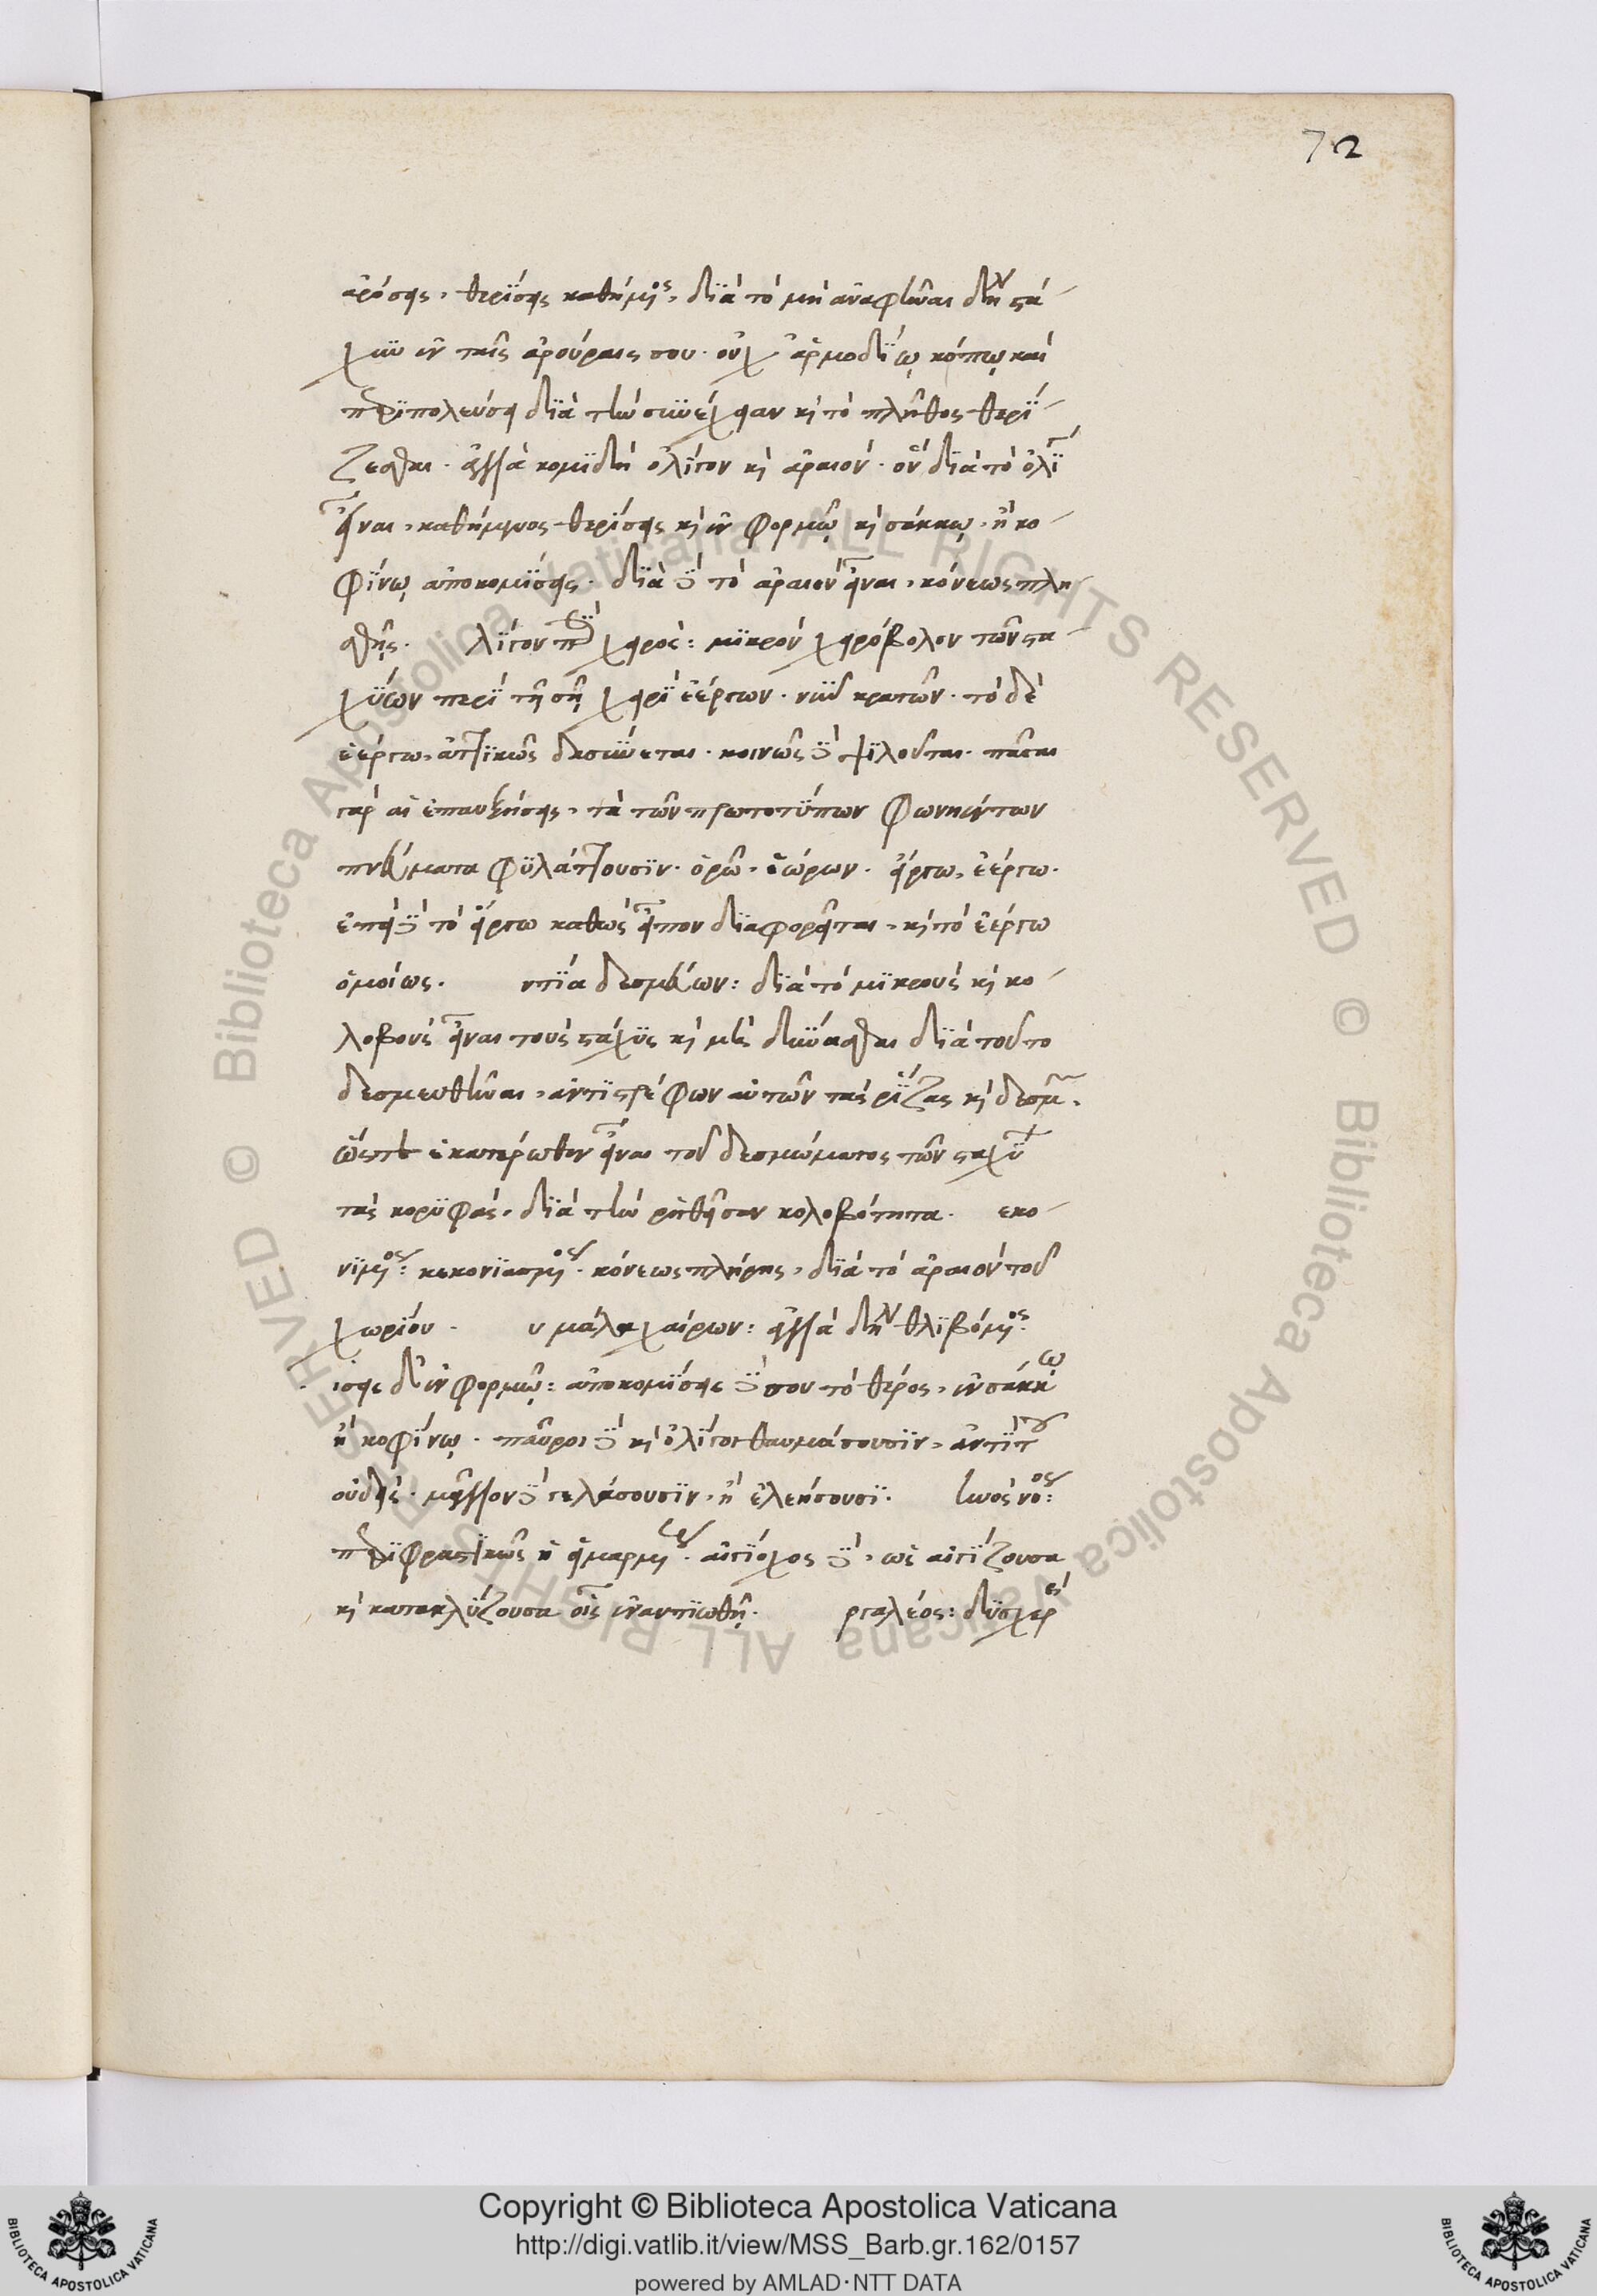 72
ἀρόσῃς, θερίσῃς καθήμενος, διὰ τὸ μὴ ἀναφῦναι δὴν στά-
χυν ἐν ταῖς ἀρούραις σου. οὐχ ἁρμοδίῳ κόπῳ καὶ
περιπολεύσει διὰ τὴν συνέχειαν καὶ τὸ πλῆθος θερί-
ζεσθαι. ἀλλὰ κομιδῇ ὀλίγον καὶ ἀραιόν. οὗ διὰ τὸ ὀλί
εἶναι, καθήμενος θερίσεις καὶ ἐν φορμῷ καὶ σάκκῳ, ἢ κο-
φίνῳ ἀποκομίσεις. διὰ δὲ τὸ ἀραιὸν εἶναι, κόνεως πλη-
σθῇς. λίγον περὶ χειρός: μικρὸν χειρόβολον τῶν στα-
χύων περὶ τῇ σῇ χειρὶ ἐέργων. νῦν κρατῶν. τὸ δὲ
ἐέργω, ἀττικῶς δασύνεται. κοινῶς δὲ ψιλοῦται. πᾶσαι
γὰρ αἱ ἐπαυξήσεις, τὰ τῶν πρωτοτύπων φωνηέντων
πνεύματα φυλάττουσιν. ὁρῶ, ἑώρων. εἴργω, ἐέργω.
ἐπεὶ δὲ τὸ εἴργω καθὼς εἶπον διαφορεῖται, καὶ τὸ ἐέργω
ὁμοίως. ντία δεσμεύων: διὰ τὸ μικροὺς καὶ κο-
λοβοὺς εἶναι τοὺς στάχυς καὶ μὴ δύνασθαι διὰ τοῦτο
δεσμευθῆναι, ἀντιστρέφων αὐτῶν τὰς ῥίζας καὶ δεσμ.
ὥστε ἑκατέρωθεν εἶναι τοῦ δεσμώματος τῶν σταχύ
τὰς κορυφάς, διὰ τὴν ῥηθεῖσαν κολοβότητα. εκο-
νιμένος: κεκονιασμένος. κόνεως πλήρης, διὰ τὸ ἀραιὸν τοῦ
χωρίου. υ μάλα χαίρων: ἀλλὰ δὴν θλιβόμενος.
ισεις δ' ἐν φορμῷ: ἀποκομίσεις δέ σου τὸ θέρος, ἐν σάκκῳ
ἢ κοφίνῳ. παῦροι δὲ καὶ ὀλίγοι θαυμάσουσιν, ἀντὶ τοῦ
οὐδείς. μᾶλλον δὲ γελάσουσιν, ἢ ἐλεήσουσι. ηνὸς νόος:
περιφραστικῶς ἡ εἱμαρμένη. αἰγίοχος δέ, ὡς αἰγίζουσα
καὶ κατακλύζουσα οἷς ἐναντιωθῇ. ργαλέος: δυσχερεὶ
Copyright © Biblioteca Apostolica Vaticana
http://digi.vatlib.it/view/MSS_Barb.gr.162/0157
powered by AMLAD·NTT DATA